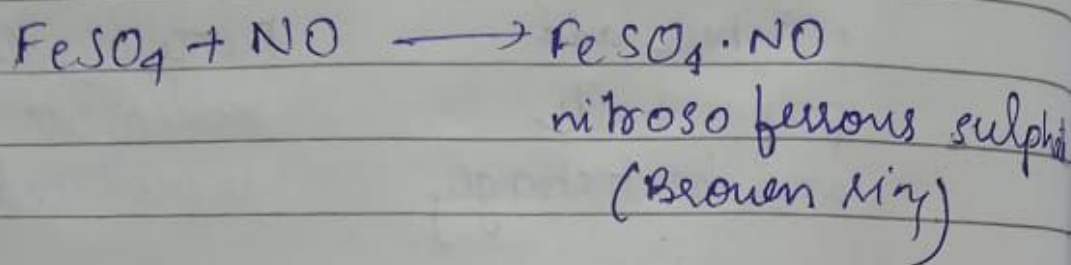 FeSO₄ + NO ⟶ FeSO₄·NO
nitroso ferrous sulpha
(Brown ring)